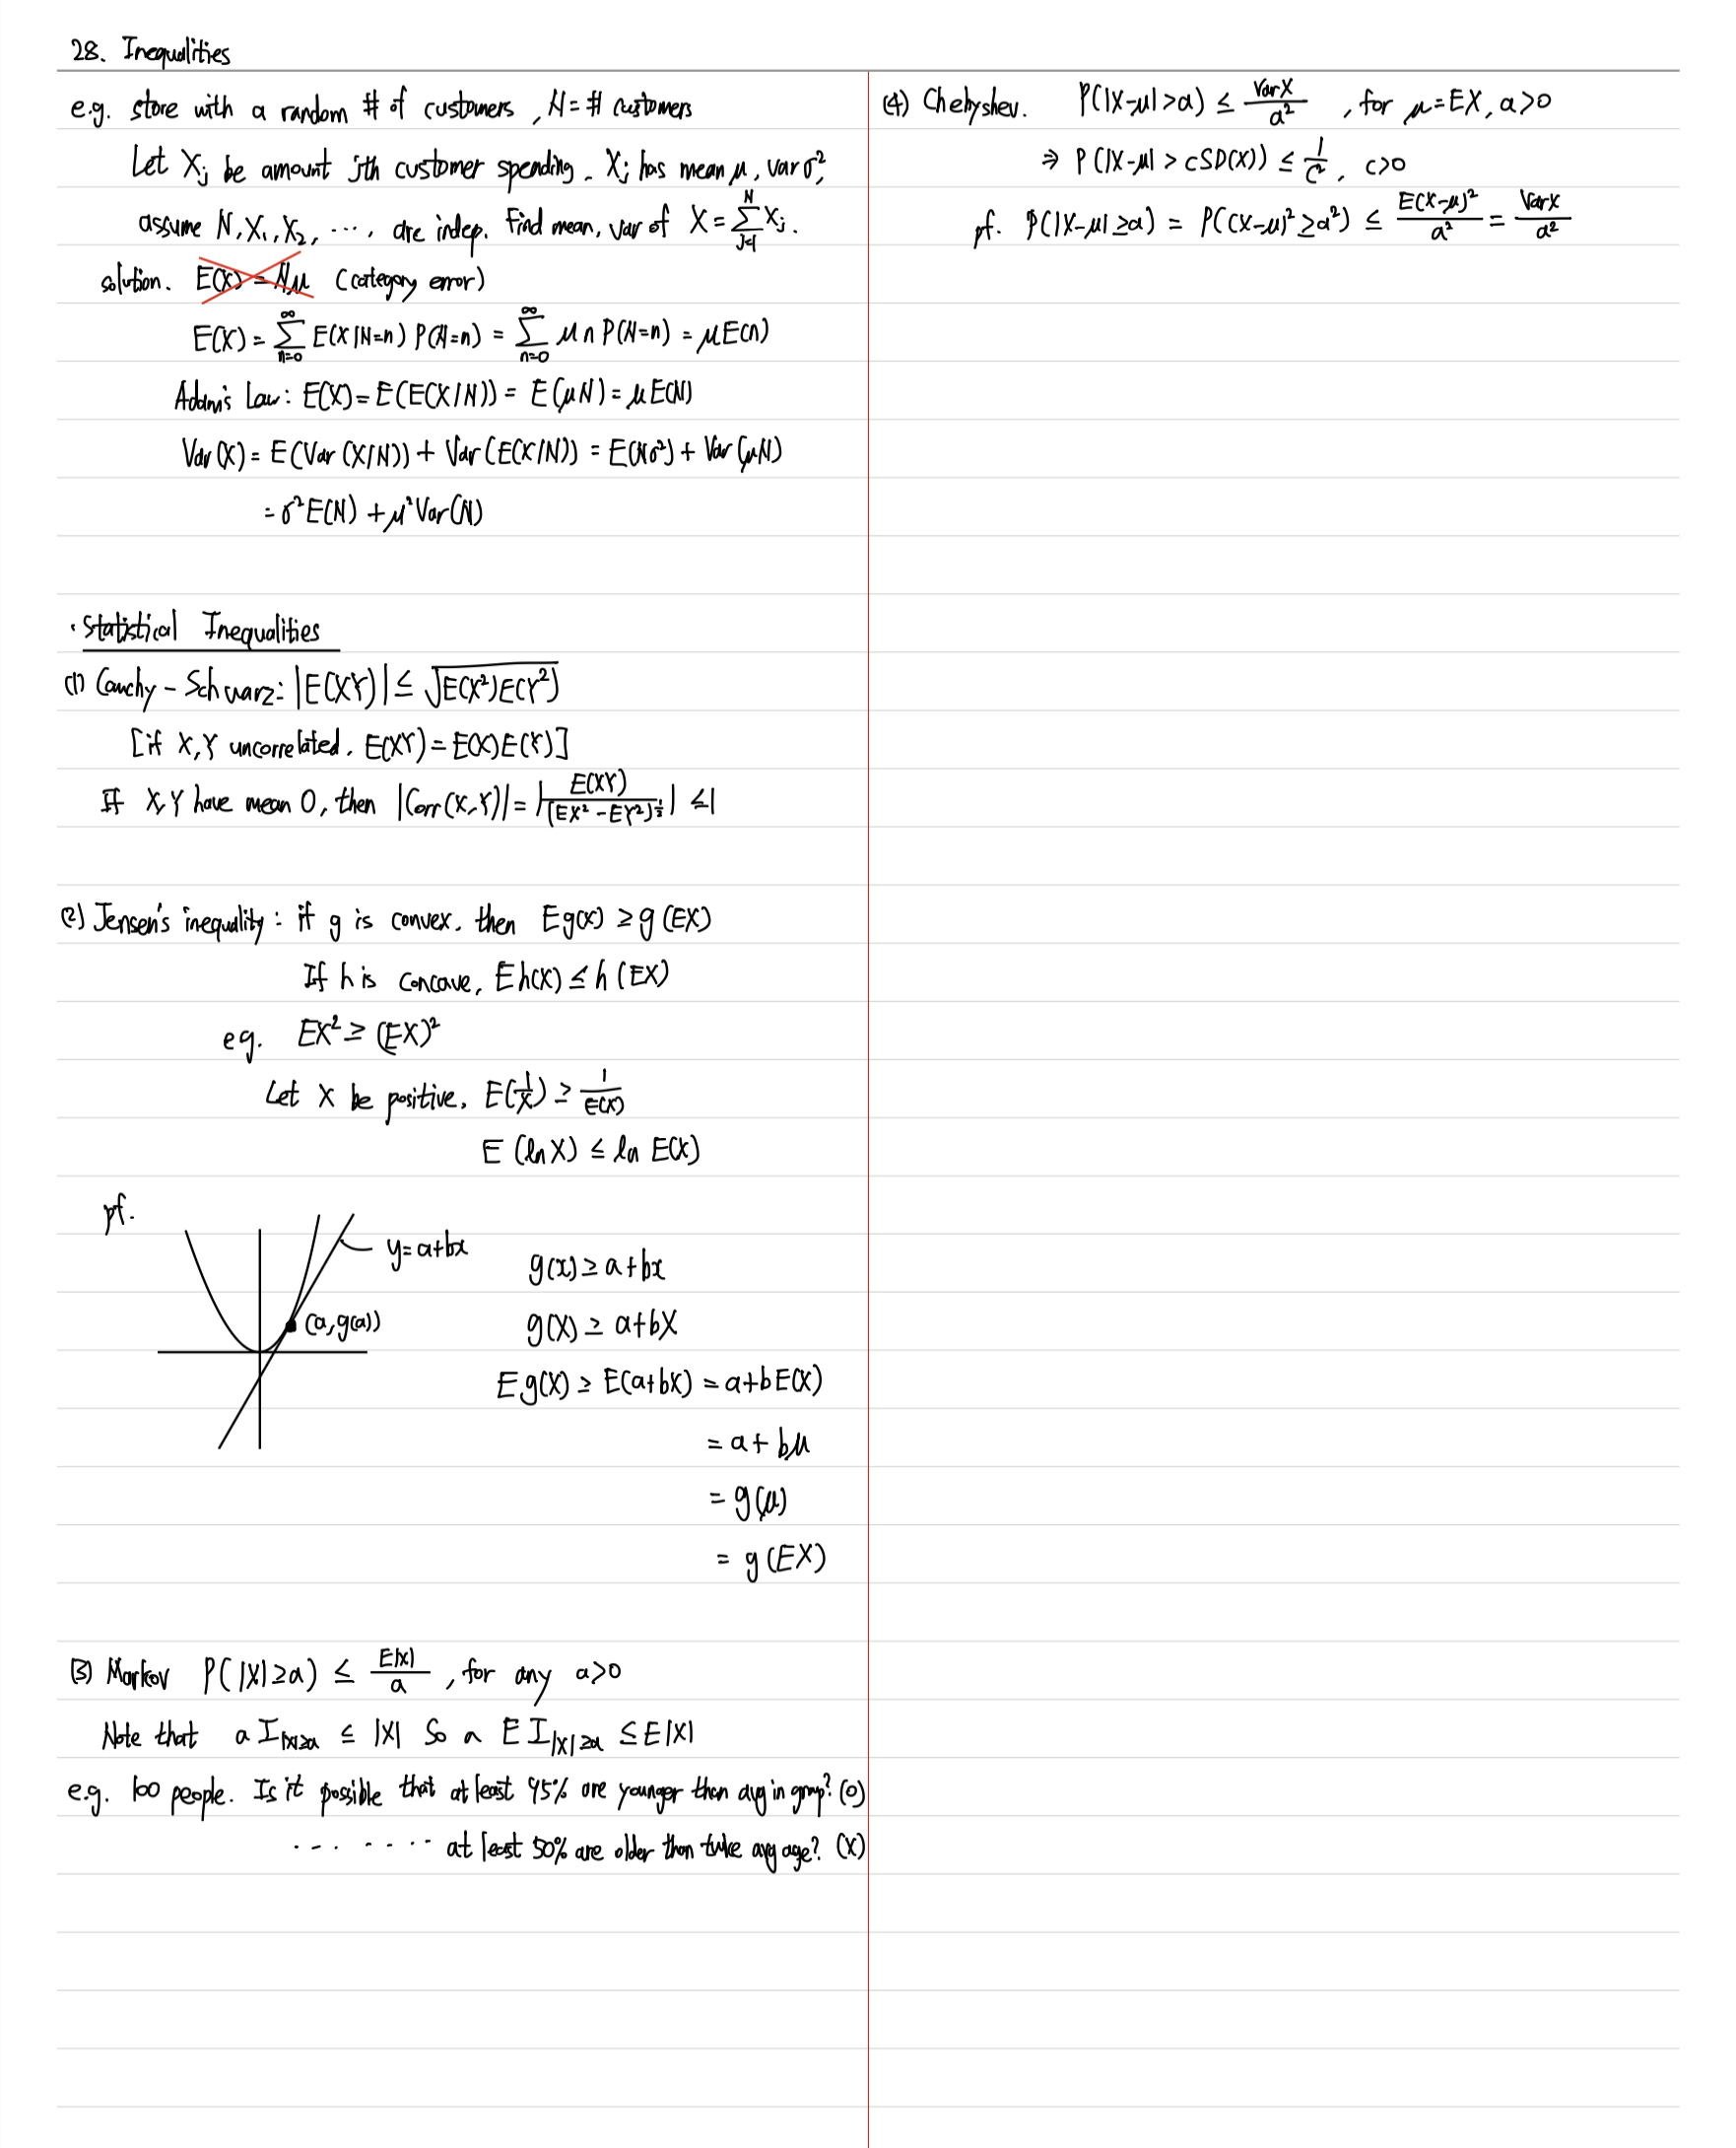 28. Inequalities
e.g. store with a random # of customers, N = # customers
Let Xj be amount jth customer spending. Xj has mean μ, var σ².
assume N, X₁, X₂, ..., are indep. Find mean, var of X = Σ_{j=1}^{N} Xj.
solution. E(X) = Nμ (category error)
E(X) = Σ_{n=0}^{∞} E(X|N=n) P(N=n) = Σ_{n=0}^{∞} μn P(N=n) = μE(n)
Adam's Law: E(X) = E(E(X|N)) = E(μN) = μE(N)
Var(X) = E(Var(X|N)) + Var(E(X|N)) = E(Nσ²) + Var(μN)
= σ²E(N) + μ²Var(N)
· Statistical Inequalities
(1) Cauchy-Schwarz: |E(XY)| ≤ √(E(X²)E(Y²))
[if X,Y uncorrelated, E(XY) = E(X)E(Y)]
If X,Y have mean 0, then |Corr(X,Y)| = |E(XY)/(EX² - EY²)^{1/2}| ≤ 1
(2) Jensen's inequality: if g is convex, then Eg(x) ≥ g(EX)
If h is concave, Eh(X) ≤ h(EX)
eg. EX² ≥ (EX)²
Let X be positive. E(1/X) ≥ 1/E(X)
E(ln X) ≤ ln E(X)
pf.
y=a+bx
(a, g(a))
g(x) ≥ a+bx
g(X) ≥ a+bX
Eg(X) ≥ E(a+bX) = a+bE(X)
= a+bμ
= g(μ)
= g(EX)
(3) Markov P(|X|≥a) ≤ E|X|/a, for any a>0
Note that a I_{|X|≥a} ≤ |X| So a E I_{|X|≥a} ≤ E|X|
e.g. 100 people. Is it possible that at least 95% are younger than avg in group? (O)
... .... at least 50% are older than twice avg age? (X)
(4) Chebyshev. P(|X-μ|>a) ≤ VarX/a², for μ=EX, a>0
⇒ P(|X-μ| > cSD(X)) ≤ 1/c², c>0
pf. P(|X-μ|≥a) = P((X-μ)²≥a²) ≤ E(X-μ)²/a² = VarX/a²